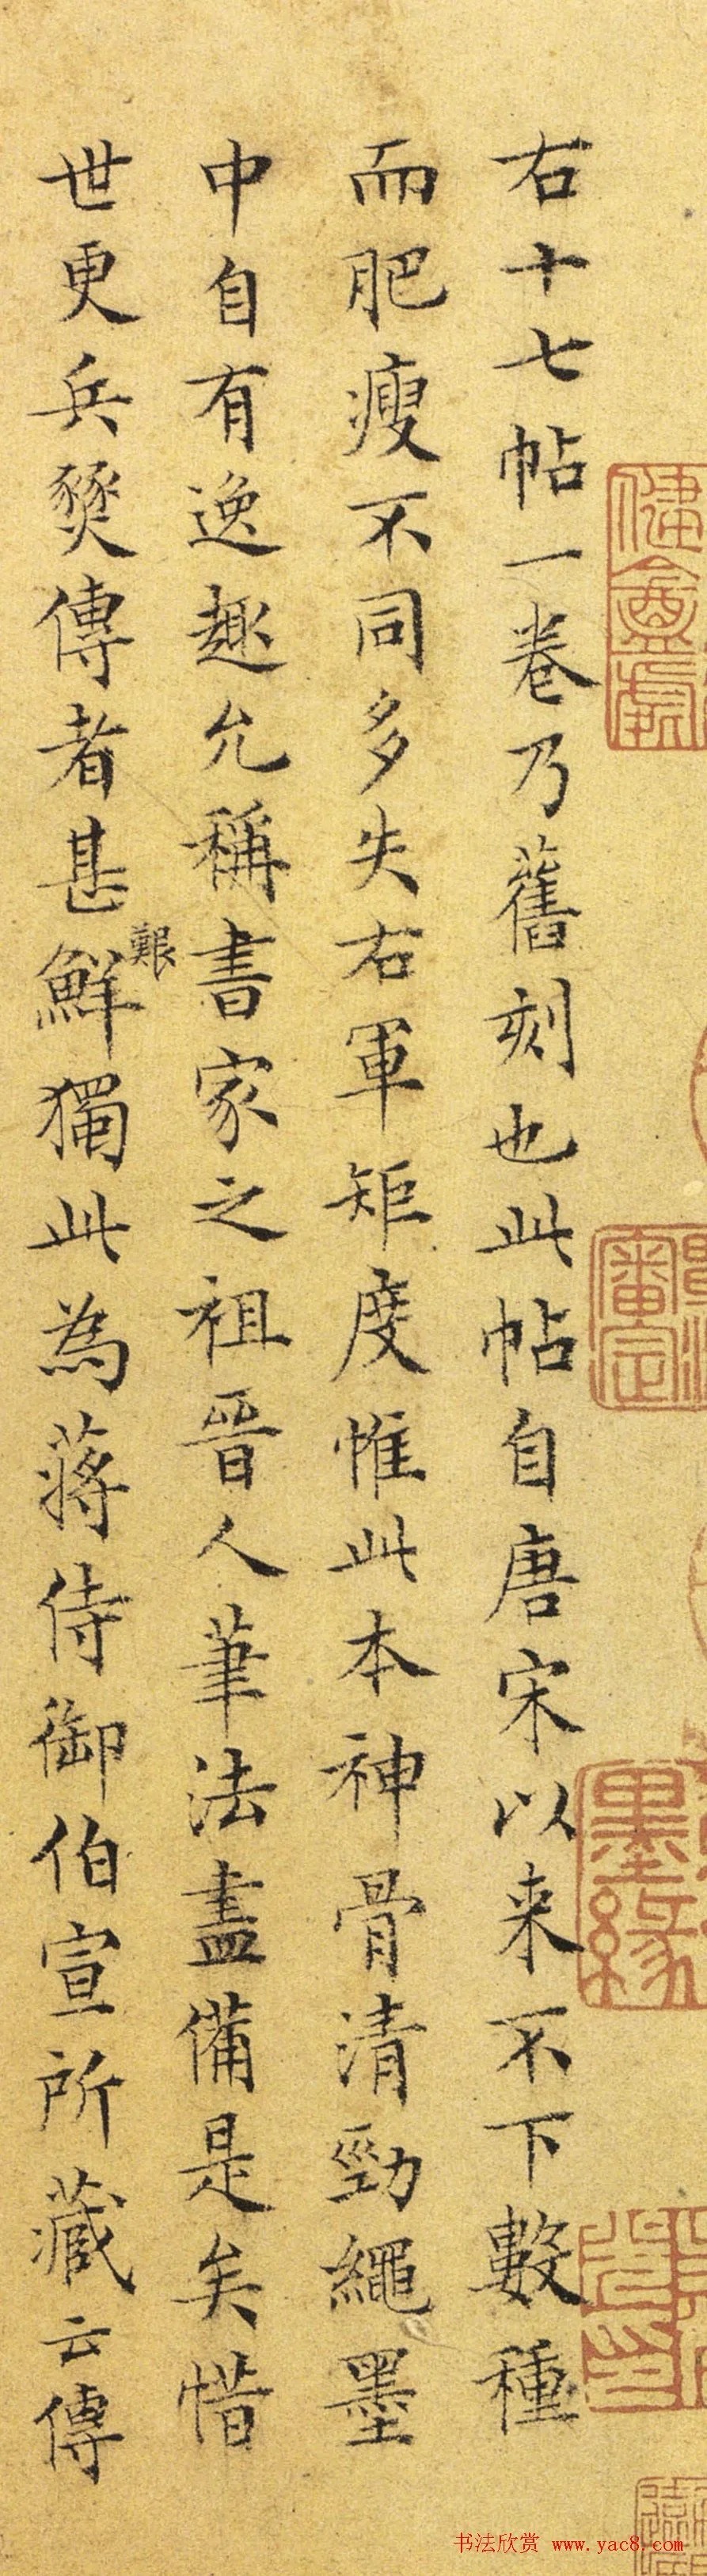 右十七帖一卷乃舊刻也此帖自唐宋以来不下數種
而肥瘦不同多失右軍矩度惟此本神骨清勁繩墨
中自有逸趣允稱書家之祖晉人筆法盡備是矣惜
世更兵燹傳者甚鮮獨此為蔣侍御伯宣所藏云傳
艱
墨緣
审定
书法欣赏 www.yac8.com